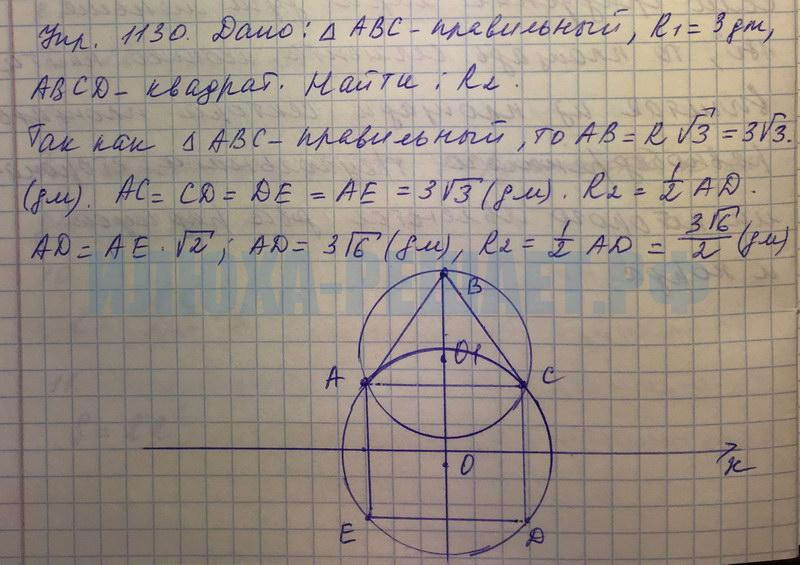 Упр. 1130. Дано: △ ABC - правильный, R1 = 3 дм,
ABCD - квадрат. Найти: R2.
Так как △ ABC - правильный, то AB = R √3 = 3√3.
(дм). AC = CD = DE = AE = 3√3 (дм). R2 = 1/2 AD.
AD = AE · √2; AD = 3√6 (дм), R2 = 1/2 AD = 3√6/2 (дм)
ИЛЮХА-РЕШАЕТ.РФ
B
O1
A
C
O
x
E
D